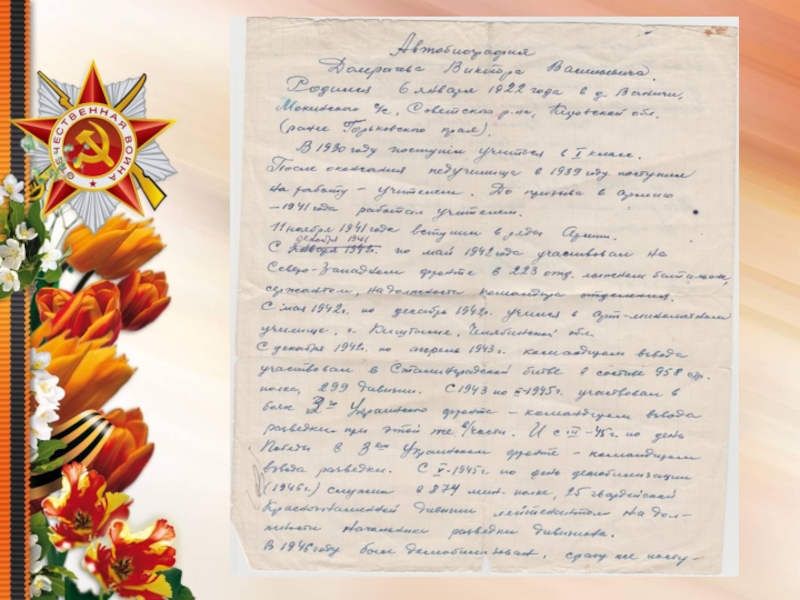 ОТЕЧЕСТВЕННАЯ ВОЙНА
Автобиография
Виктора Васильевича.
Родился 6 января 1922 года в д.
Мокинского с/с, Советского р-на, Кировской обл.
(ранее Горьковского края).
В 1930 году поступил учиться в I класс.
После окончания педучилища в 1939 году поступил
на работу – учителем. До призыва в армию
– 1941 года работал учителем.
11 ноября 1941 года вступил в ряды Армии.
декабря 1941
С января 1942г. по май 1942 года участвовал на
Северо-Западном фронте в 223 отд. лыжном батальоне,
сержантом, на должности командира отделения.
С мая 1942г. по декабрь 1942г. учился в арт-минометном
училище, г. Кыштыме, Челябинской обл.
С декабря 1942г. по апрель 1943г. командиром взвода
участвовал в Сталинградской битве в составе 958 стр.
полка, 299 дивизии. С 1943 по 1945г. участвовал в
боях Украинского фронта – командиром взвода
разведки при этой же в/части. И с III-45г. по день
Победы в 3ем Украинском фронте – командиром
взвода разведки. С V-1945г. по день демобилизации
(1946г.) служил в 874 мин. полке, 25 гвардейской
Краснознаменной дивизии лейтенантом на дол-
жности начальника разведки дивизиона.
В 1946 году был демобилизован, сразу же посту-